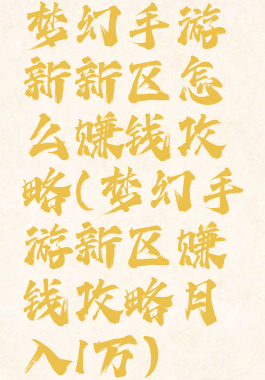 梦幻手游
新新区怎
么赚钱攻
略(梦幻手
游新区赚
钱攻略月
入1万)